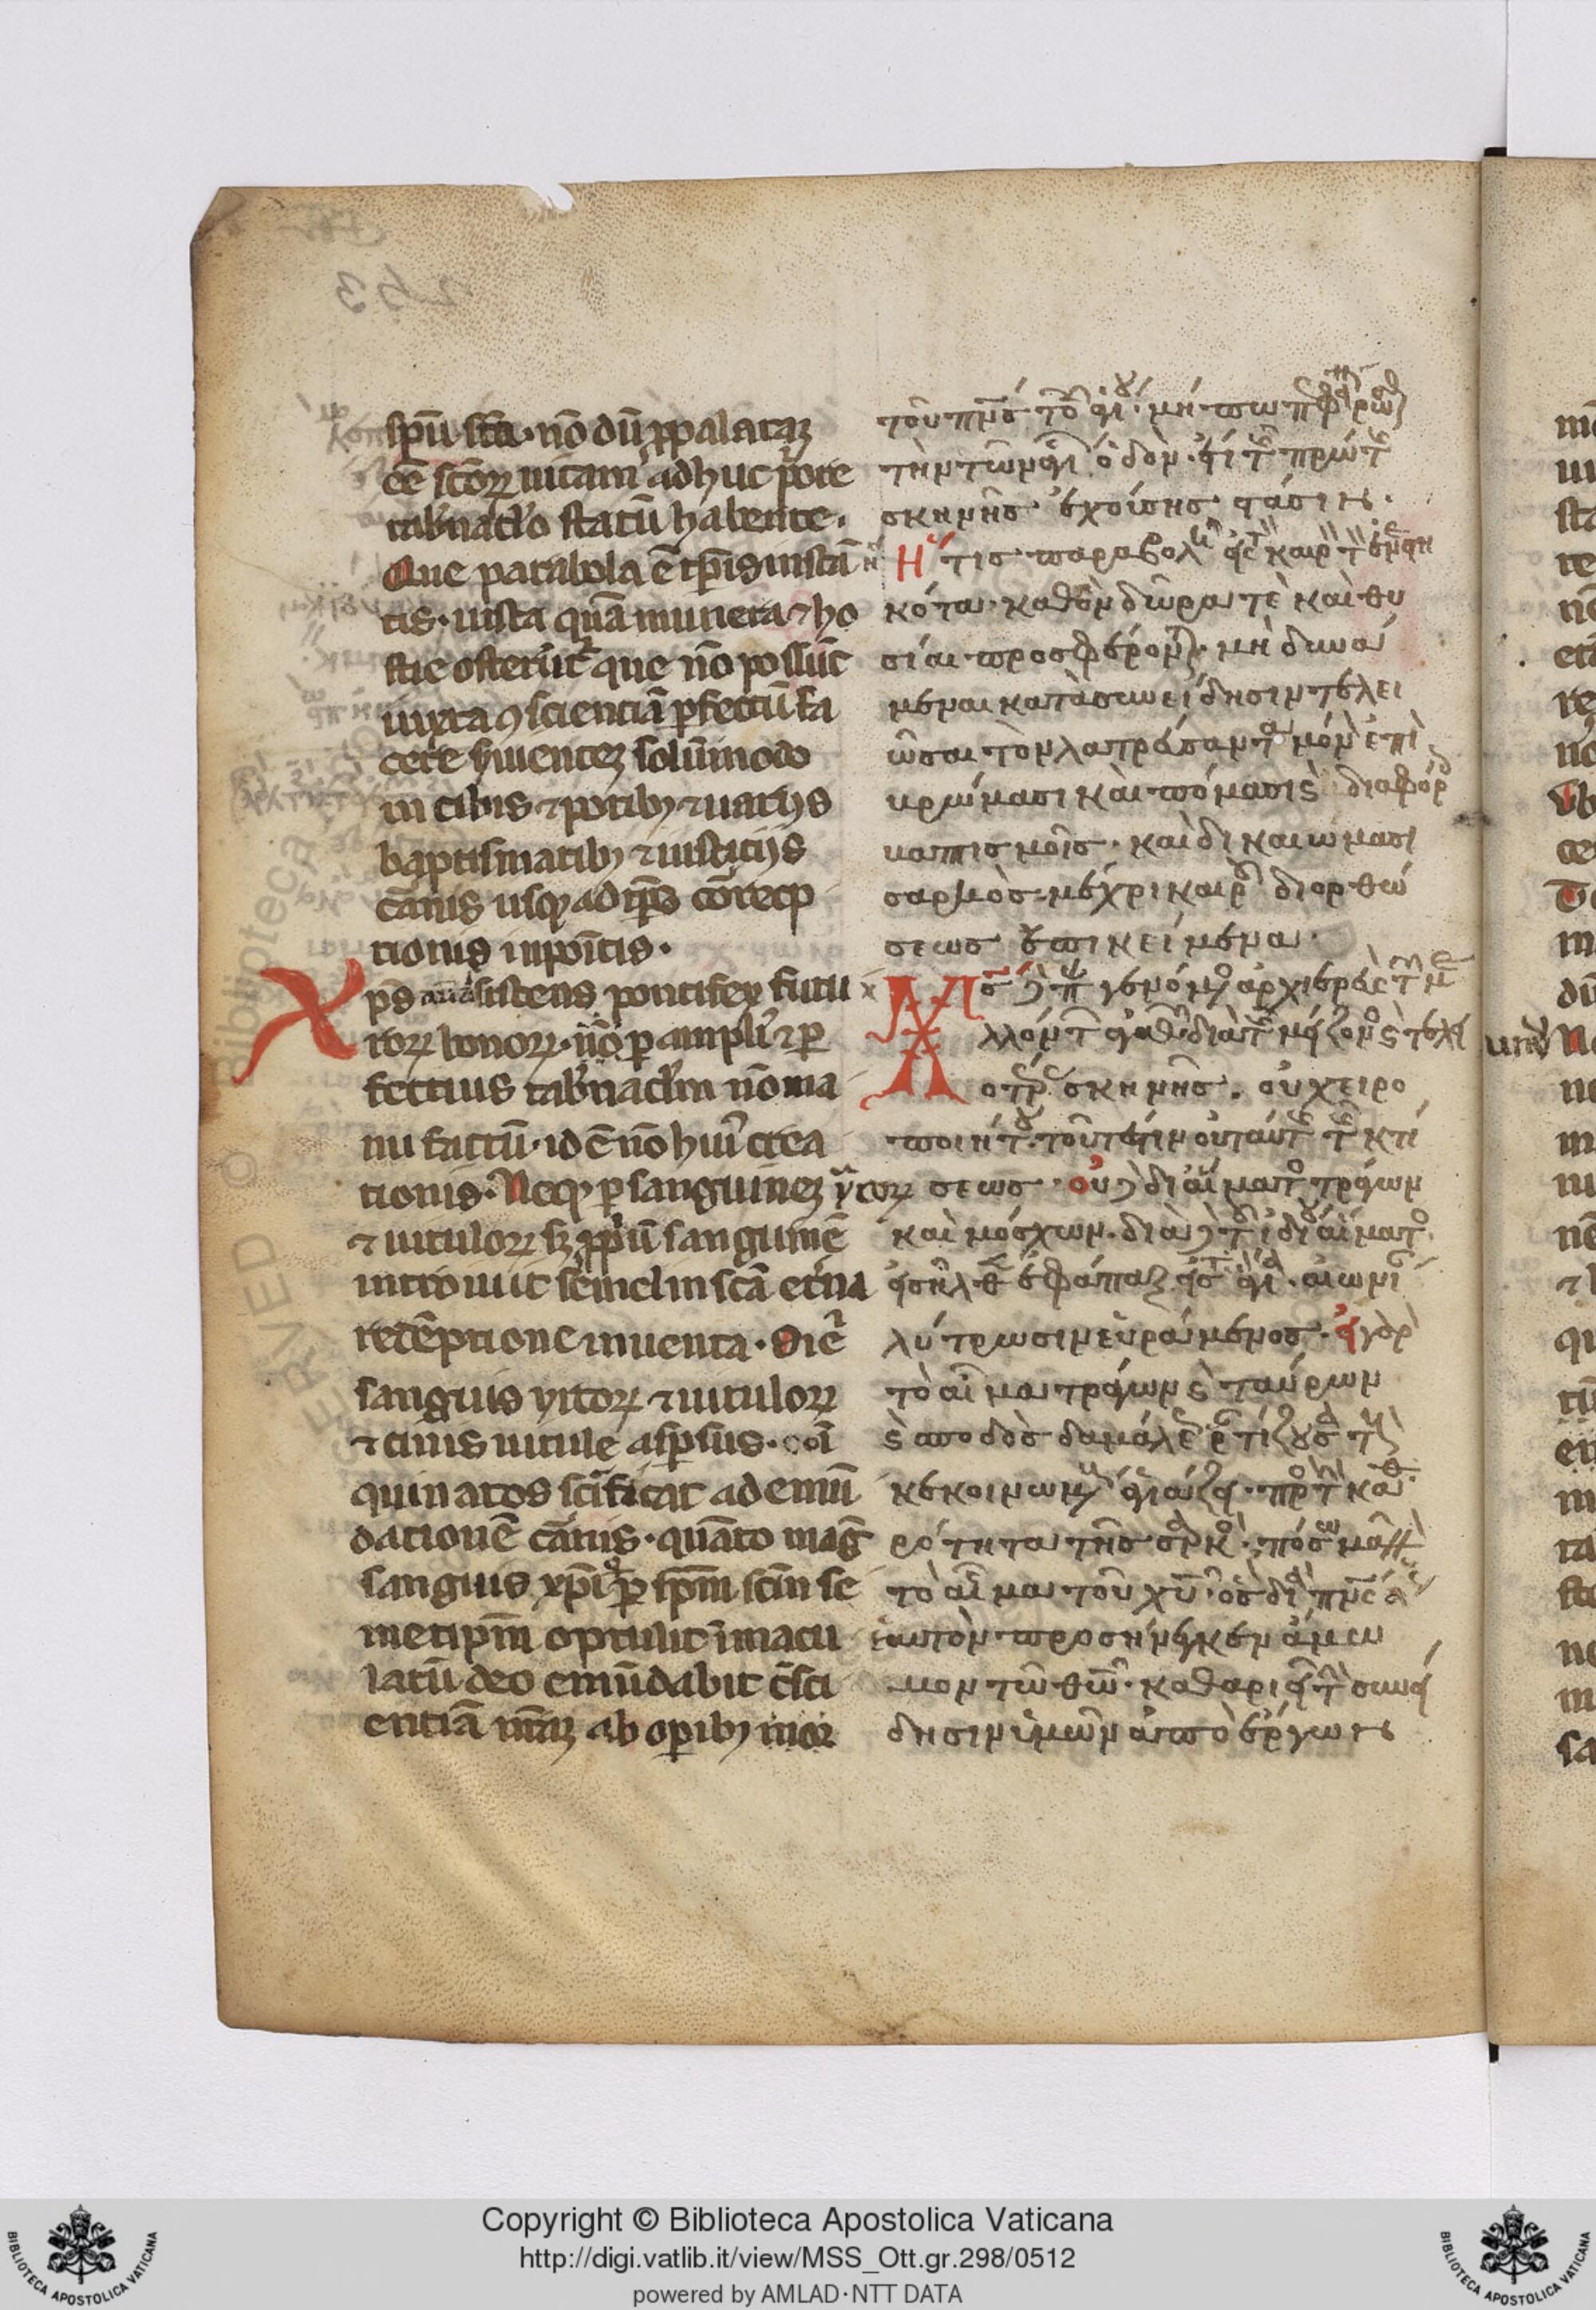 sp̄u sc̄o· nō dū ꝓpalataꝫ
eē sc̄oꝝ uitam adhuc p̄ore
tab̄nacl̄o statū habente.
Que parabola ē tp̄is instā
tis· iuxta quā munera ⁊ ho
stie offerūt̄ que nō possūt
iuxta ꝯscientiā ꝑfectū fa
cere seruienteꝫ solūmodo
in cibis ⁊ potibꝫ ⁊ uariis
baptismatibꝫ ⁊ iusticiis
cārnis usqꝫ ad tp̄s corec
tionis inpōitis·
Xp̄s assistens pontifex futu
roꝝ bonoꝝ· ꝑ ampli ⁊ ꝑ
fectius tab̄nacl̄m nō ma
nu factū· id ē nō hui crea
tionis· Neqꝫ ꝑ sanguineꝫ yrcoꝝ
⁊ uituloꝝ sꝫ ꝓpiū sanguinē
introiuit semel in sc̄a et̄na
redēptione inuenta· Si ē
sanguis yrcoꝝ ⁊ uituloꝝ
⁊ cinis uitule asꝑsus· coi
quinatos sc̄ificat ad emū
dationē cārnis· quāto maḡ
sanguis xp̄i ꝑ sp̄m sc̄m se
metip̄m optulit īmacu
latū deo emūdabit cōsci
entiā nr̄aꝫ ab oꝑibꝫ mor
τοῦ πν̄σ τοῦ ἁγίου· μήπω πεφανερῶσθαι
τὴν τῶν ἁγίων ὁδὸν· ἔτι τῆς πρώτης
σκηνῆς ἐχούσης στάσιν·
Ἥτις παραβολὴ εἰς τὸν καιρὸν τὸν ἐνεστη
κότα· καθ' ὃν δῶρα τὲ καὶ θυ
σίαι προσφέρονται· μὴ δυνά
μεναι κατὰ συνείδησιν τελει
ῶσαι τὸν λατρεύοντα μόνον ἐπὶ
βρώμασι καὶ πόμασι ϛ̀ διαφόροις
βαπτισμοῖς· καὶ δικαιώμασι
σαρκὸς μέχρι καιροῦ διορθώ
σεως ἐπικείμενα·
Χ̄σ δὲ παραγενόμενος ἀρχιερεὺς τῶν με
λλόντων ἀγαθῶν διὰ τῆς μείζονος ϛ̀ τελει
οτέρας σκηνῆς. οὐ χειρο
ποιήτου. τουτέστιν οὐ ταύτης τῆς κτί
σεως· οὐ δὲ δι' αἵματος τράγων
καὶ μόσχων. διὰ δὲ τοῦ ἰδίου αἵματος
εἰσῆλθεν ἐφάπαξ εἰς τὰ ἅγια. αἰωνίαν
λύτρωσιν εὑράμενος· εἰ γὰρ
τὸ αἷμα τράγων ϛ̀ ταύρων
ϛ̀ σποδὸς δαμάλεως ῥαντίζουσα τοὺς
κεκοινωμένους ἁγιάζει· πρὸς τὴν καθα
ρότητα τῆς σαρκὸς· πόσῳ μᾶλλον
τὸ αἷμα τοῦ χῡ· ὃς διὰ πν̄σ ἁγίου
ἑαυτὸν προσήνεγκεν ἄμω
μον τῶ θεῶ· καθαριεῖ τὴν συνεί
δησιν ἡμῶν ἀπὸ ἔργων
Copyright © Biblioteca Apostolica Vaticana
http://digi.vatlib.it/view/MSS_Ott.gr.298/0512
powered by AMLAD·NTT DATA
BIBLIOTECA APOSTOLICA VATICANA
BIBLIOTECA APOSTOLICA VATICANA